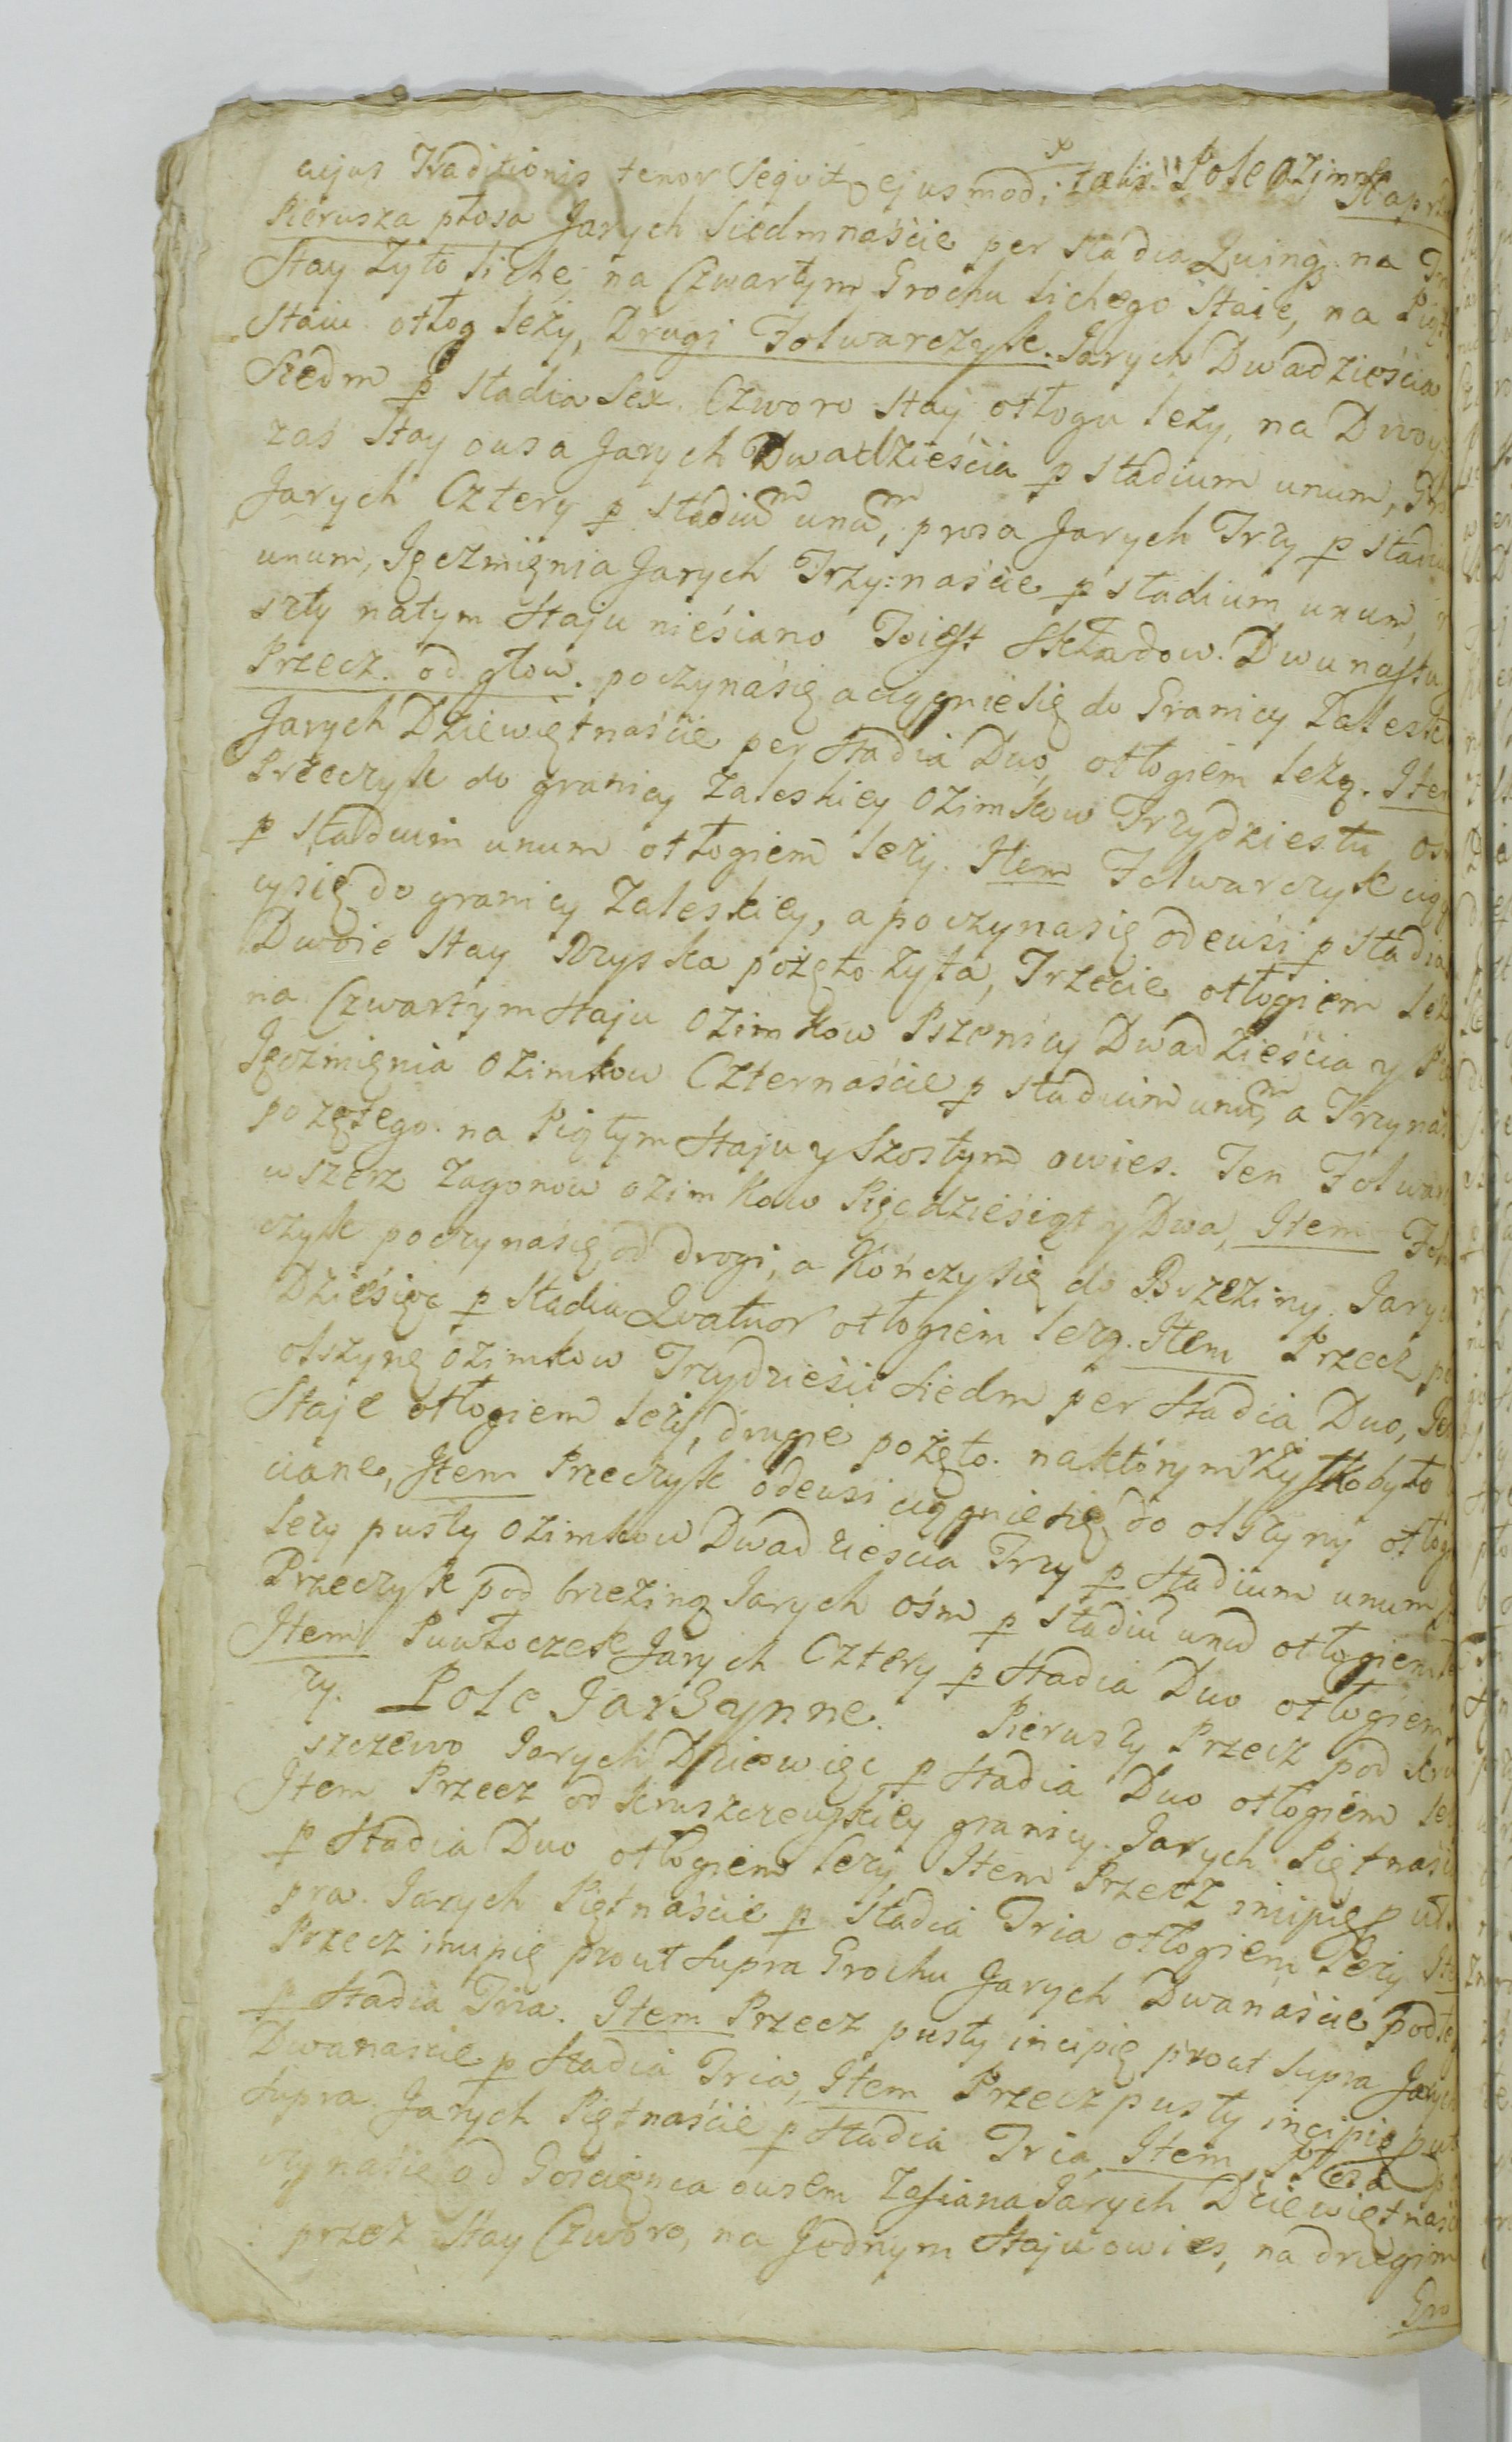 cujus Traditionis tenor Seqvit ejusmod: talis: Pole Ozimne
Pierusza płosa Jarych Siedmnaście per Stadia Quinq na
Stay Zyto liche, na Czwartym Grochu lichego Staie, na
Staiu otłog leży, Drugi Folwarczyk. Jarych Dwadzieścia
Siedm p Stadia Sex. Czworo Stay otłogu leży, na Dwoy
zaś Stay ousa Jarych Dwadzieścia p Stadium unum,
Jarych Cztery p Stadium unum, prosa Jarych Trzy p Stadiu
unum, Jęczmięnia Jarych Trzy:naście p Stadium unum,
szty natym Staju nieśiano Jeist Składow. Dwunastu
Przecz. od głow. poczynaśię a ciągnie się do Granicy Zalesk
Jarych Dziewiętnaście per Stadia Duo, otłogiem leżą. Item
Przeczyk do granicy Zaleskiey Ozimkow Trzydziestu
p Stadium unum otłogiem leży. Item Folwarczyk ciąg
cysię do granicy Zaleskiey, a poczynasię odeusi p Stadia
Dwoie Stay Rzyska pożęto Zyta, Trzecie otłogiem leż
na Czwartym Staju Ozimkow Pszenicy Dwadzieścia y
Jęczmięnia Ozimkow Czternaście p Stadium unum, a Trzynaś
pozętego. na Piątym Staju y Szostym owies. Ten Folwar
wszerz Zagonow ozimkow Pięcdzieśiąt y Dwa, Item Fol
czyk poczynaśię od drogi, a Kończy się do Brzeziny. Jarych
Dzieśięć p Stadia Qvatuor otłogiem leżą. Item Przecz po
olszynę ozimkow Trzydzieści Siedm per Stadia Duo,
Staje otłogiem leży, drugie pożęto. naktórym rżystko było
ciane, Item Przeczyk odeusi ciągnie się do olszyny otłog
leży pusty Ozimkow Dwadzieścia Trzy p Stadium unum
Przeczyk pod brzeziną Jarych ośm p Stadiu unu otłogiem le
Item Puwłoczek Jarych Cztery p Stadia Duo otłogiem
ży. Pole Jarzynne. Pierusty Przecz pod kru
szczewo Jarych Dziewięc p Stadia Duo otłogiem le
Item Przecz od kruszczeuskiey granicy. Jarych Piętnaści
p Stadia Duo otłogiem leży Item Przecz incipię put.
pra. Jarych Piętnaście p Stadia Tria otłogiem leży Ite
Przecz incipię prout Supra Grochu Jarych Dwanaście podłeg
p Stadia Tria. Item Przecz pusty incipię prout Supra Jarych
Dwanaście p Stadia Tria, Item Przecz pusty incipię put
Supra. Jarych Piętnaście p Stadia Tria Item, Płosa p
czynasię od Gościęnca ousem Zasiana Jarych Dziewiętnaści
przez Stay Czworo, na Jednym Staju owies, na drugim
Gro